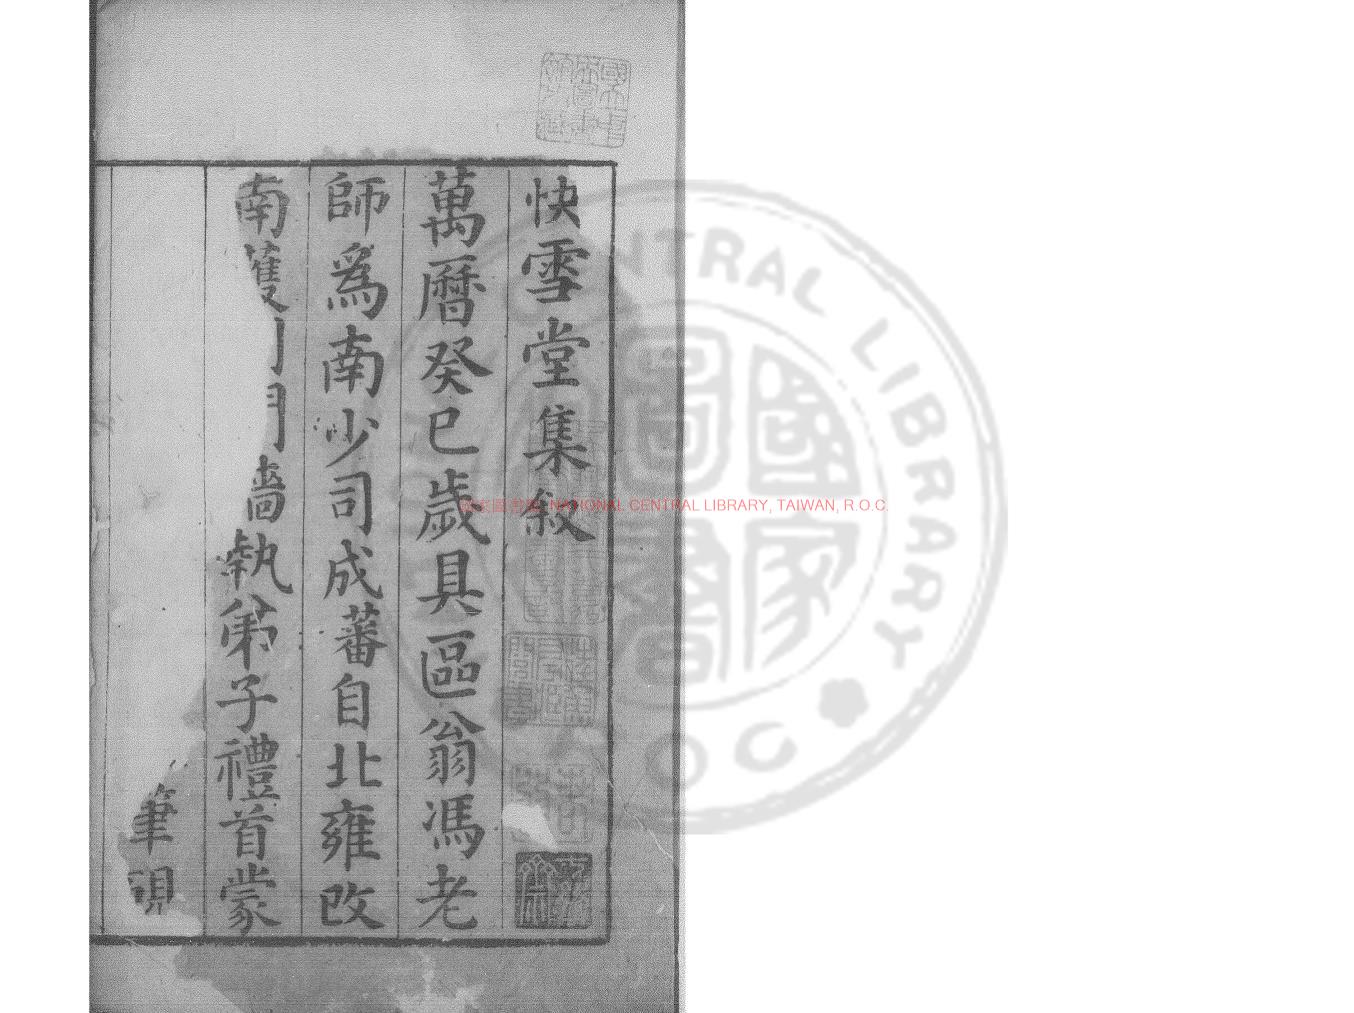 快雪堂集敘
萬曆癸巳歲具區翁馮老
師爲南少司成蕃自北雍改
南獲列門牆執弟子禮首蒙
筆硯
國家圖書館 NATIONAL CENTRAL LIBRARY, TAIWAN, R.O.C.